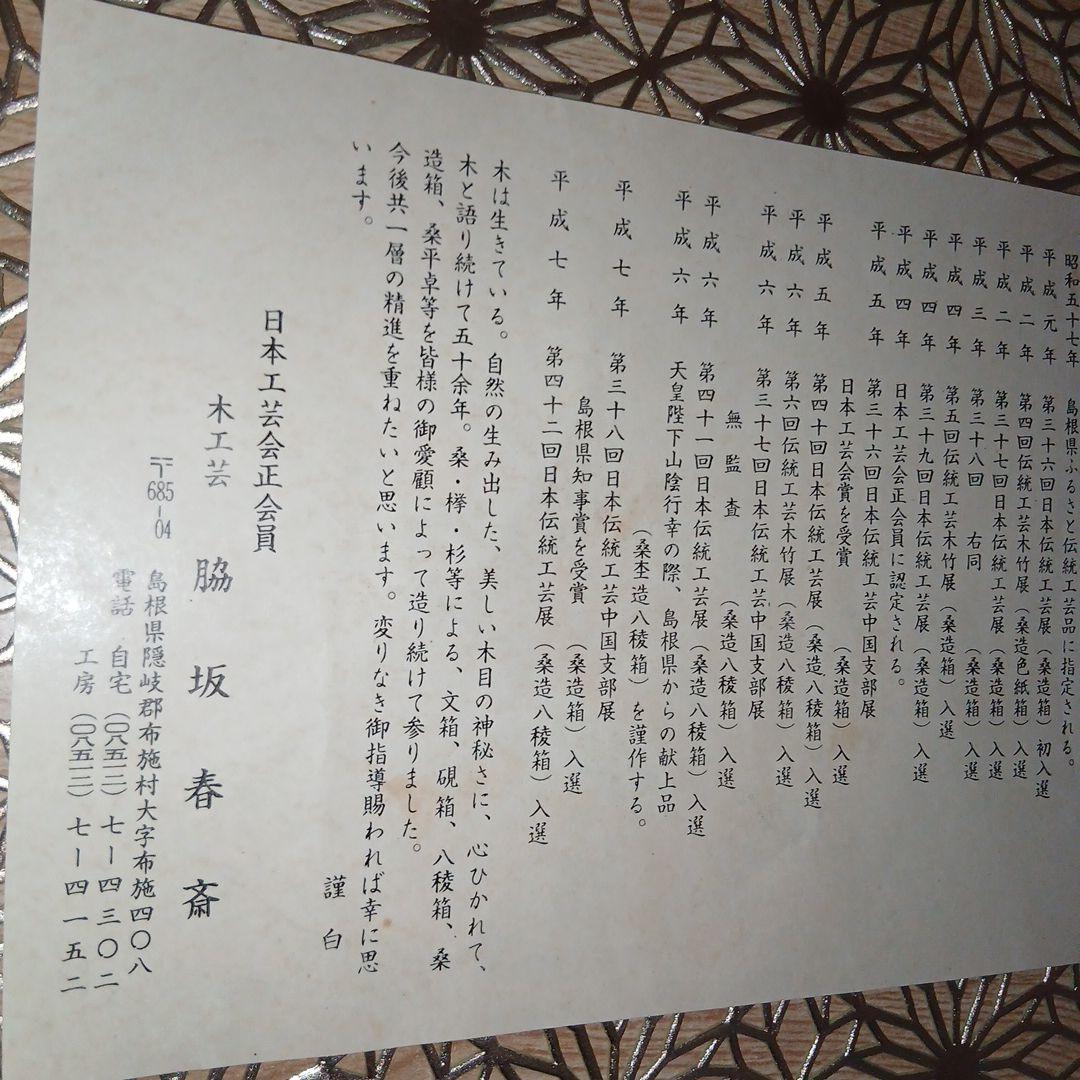 昭和五十七年 島根県ふるさと伝統工芸品に指定される。
平成元年 第三十六回日本伝統工芸展（桑造箱）初入選
平成二年 第四回伝統工芸木竹展（桑造色紙箱）入選
平成二年 第三十七回日本伝統工芸展（桑造箱）入選
平成三年 第三十八回 右同（桑造箱）入選
平成四年 第五回伝統工芸木竹展（桑造箱）入選
平成四年 第三十九回日本伝統工芸展（桑造箱）入選
平成四年 日本工芸会正会員に認定される。
平成五年 第三十六回日本伝統工芸中国支部展
日本工芸会賞を受賞（桑造箱）入選
平成五年 第四十回日本伝統工芸展（桑造八稜箱）入選
平成六年 第六回伝統工芸木竹展（桑造八稜箱）入選
平成六年 第三十七回日本伝統工芸中国支部展
無監査（桑造八稜箱）入選
平成六年 第四十一回日本伝統工芸展（桑造八稜箱）入選
平成六年 天皇陛下山陰行幸の際、島根県からの献上品
（桑杢造八稜箱）を謹作する。
平成七年 第三十八回日本伝統工芸中国支部展
島根県知事賞を受賞（桑造箱）入選
平成七年 第四十二回日本伝統工芸展（桑造八稜箱）入選
木は生きている。自然の生み出した、美しい木目の神秘さに、心ひかれて、
木と語り続けて五十余年。桑・欅・杉等による、文箱、硯箱、八稜箱、桑
造箱、桑平卓等を皆様の御愛顧によって造り続けて参りました。
今後共一層の精進を重ねたいと思います。変りなき御指導賜われば幸に思
います。
謹白
日本工芸会正会員
木工芸 脇坂春斎
〒685-04 島根県隠岐郡布施村大字布施四〇八
電話 自宅（〇八五一二）七ー四三〇二
工房（〇八五一二）七ー四一五二